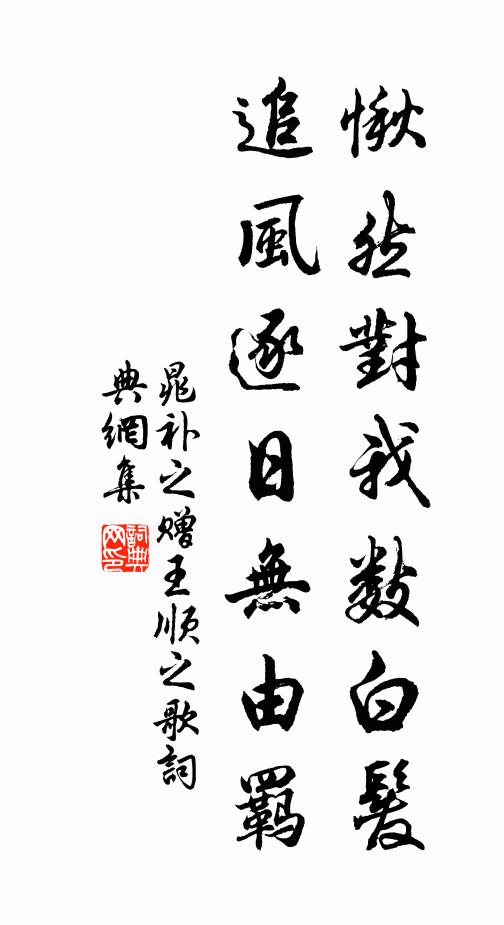 愀然對我數白髮
追風逐日無由羈
晁补之贈王順之歌詞
典網集
詞典
网印